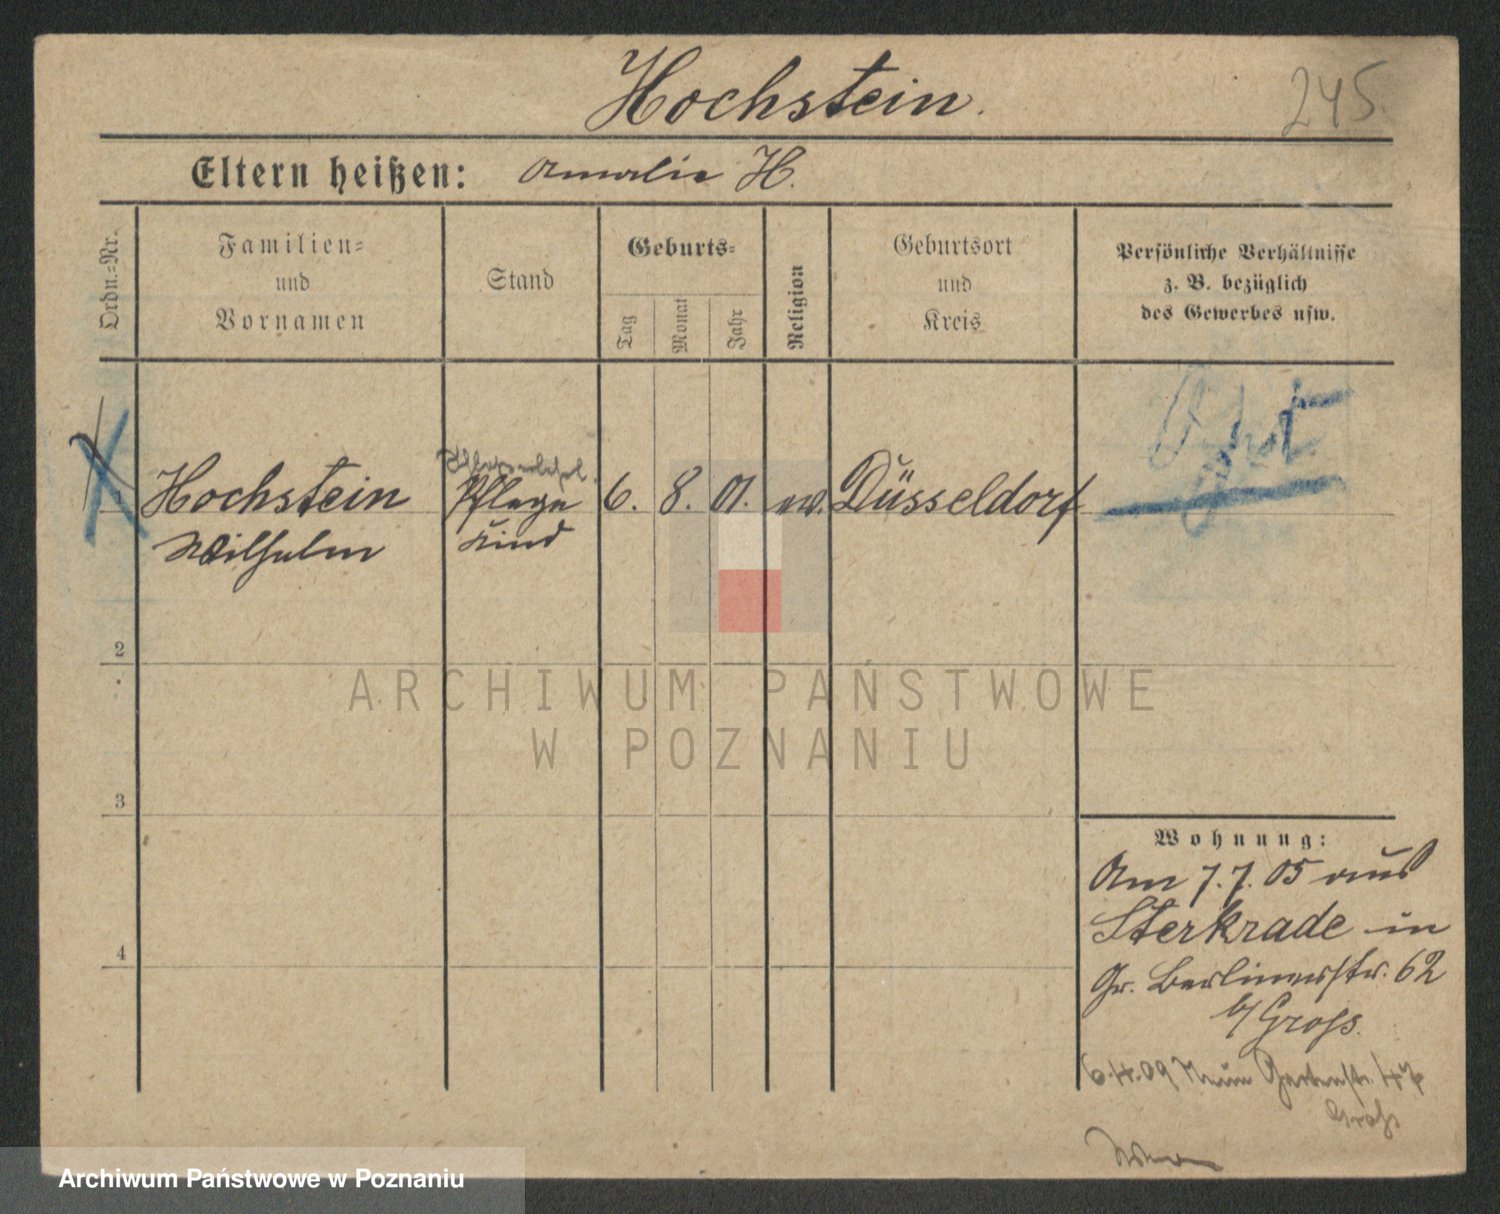 Hochstein.
245.
Eltern heißen: Amalie H.
Ordn.=Nr.
Familien=
und
Vornamen
Stand
Geburts=
Tag
Monat
Jahr
Religion
Geburtsort
und
Kreis
Persönliche Verhältnisse
z. B. bezüglich
des Gewerbes usw.
1 Hochstein Pflege 6. 8. 01. ev. Düsseldorf
Wilhelm Kind
2
3
4
Wohnung:
Am 7.7.05 aus
Sterkrade in
Gr. Berlinerstr. 62
b/ Gross.
6.4.09 Neue Gartenstr. 47
Gross
ARCHIWUM PAŃSTWOWE
W POZNANIU
Archiwum Państwowe w Poznaniu